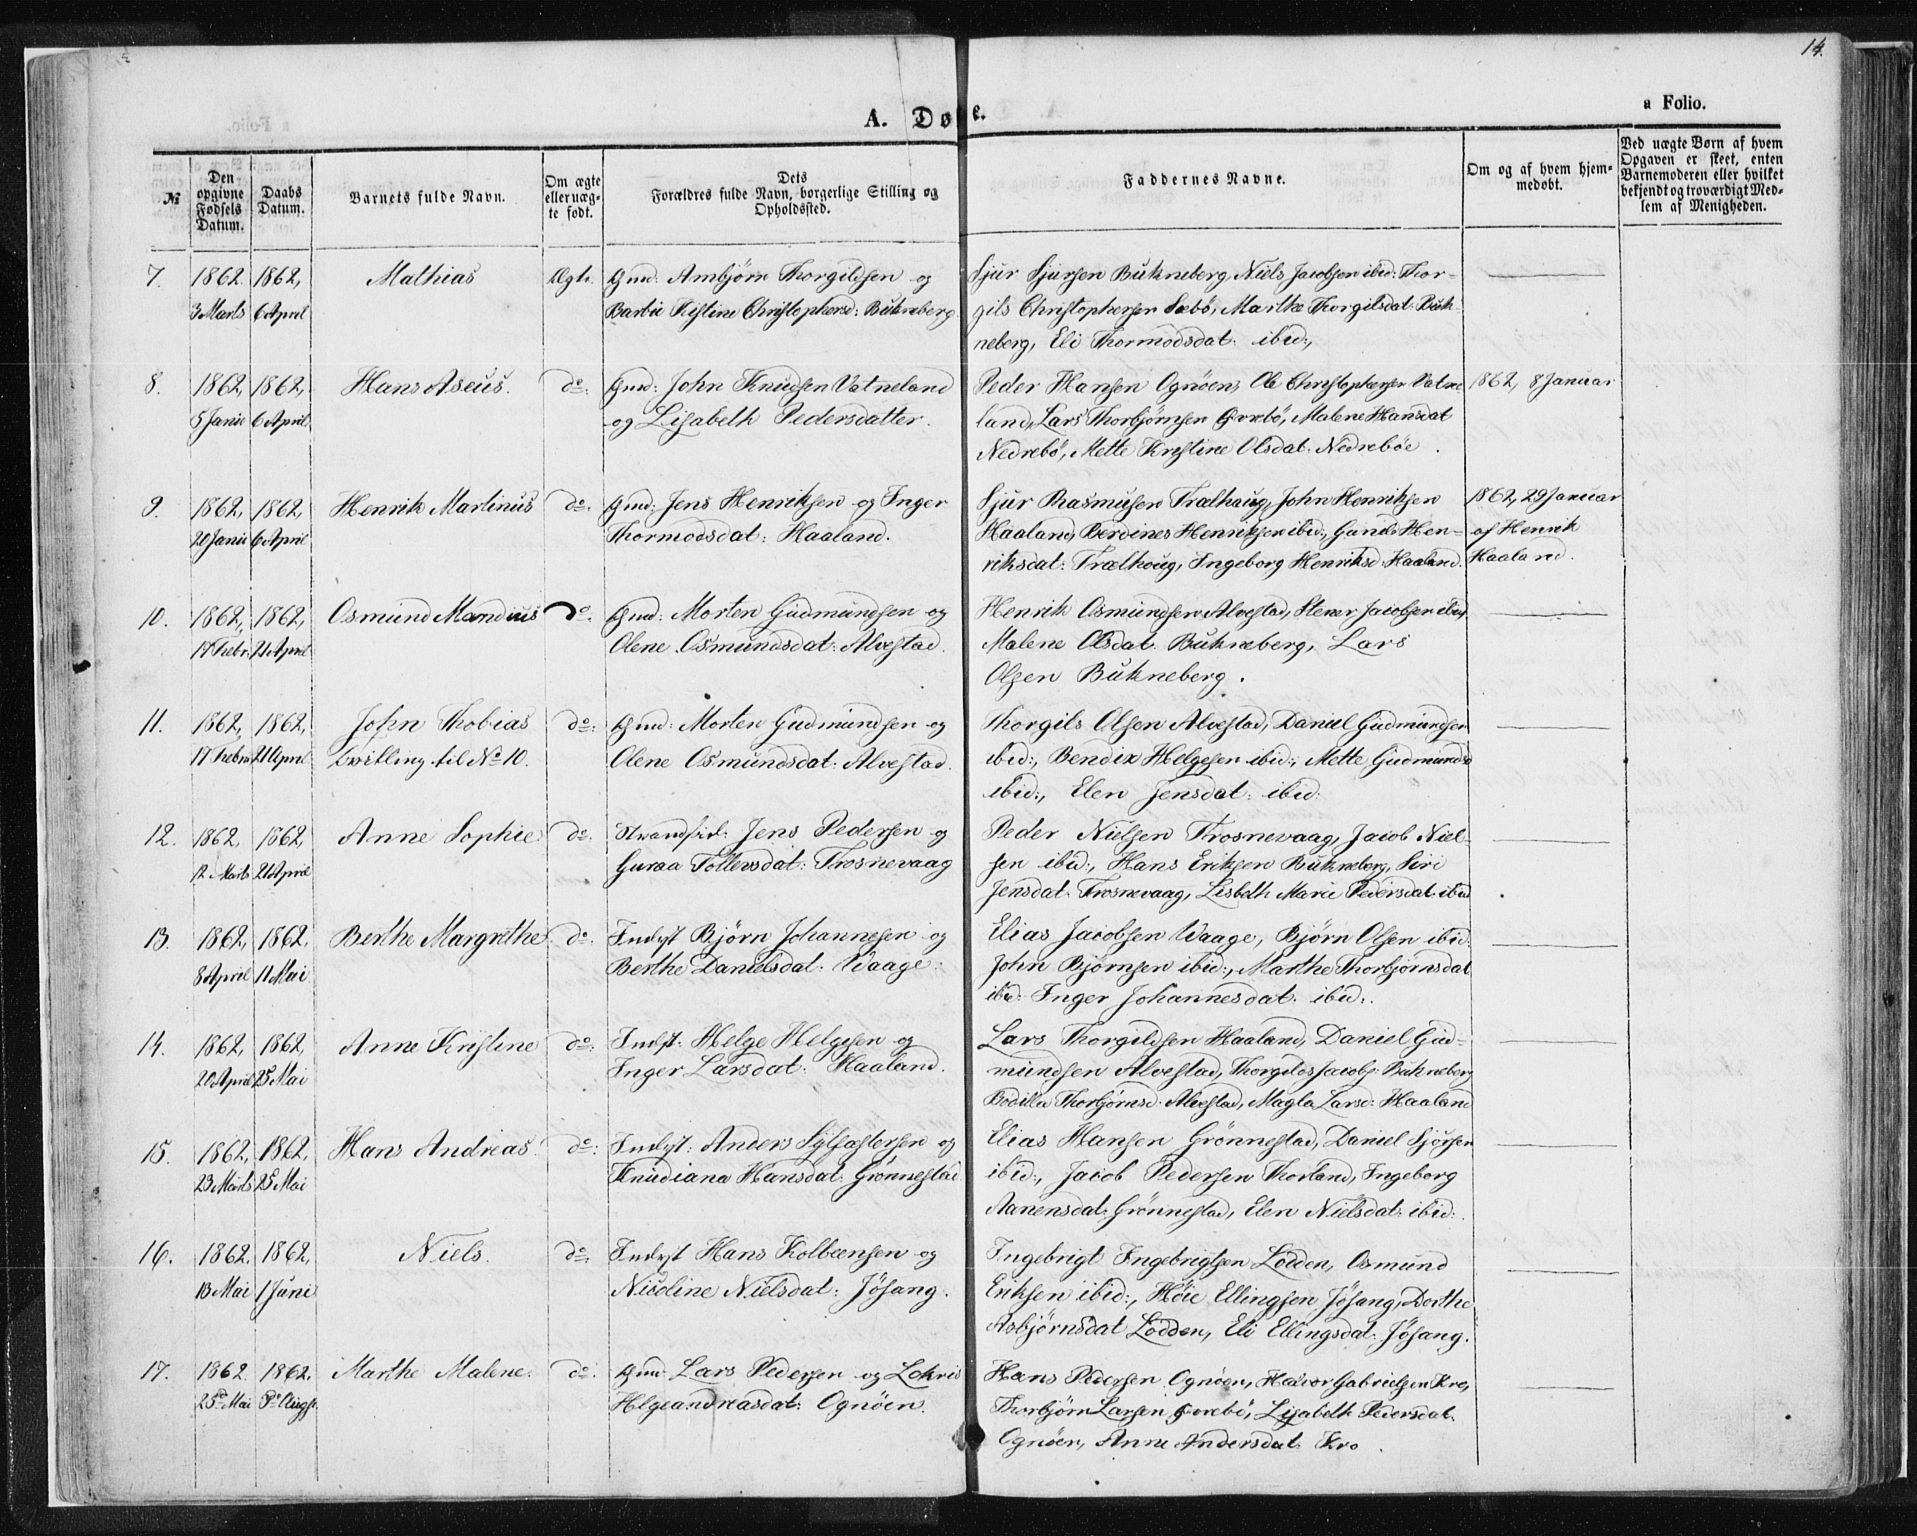 14.
a Folio.
A. Døbte.
№
Den opgivne Fødsels Datum.
Daabs Datum.
Barnets fulde Navn.
Om ægte eller uægte født.
Dets Forældres fulde Navn, borgerlige Stilling og Opholdssted.
Faddernes Navne.
Om og af hvem hjemmedøbt.
Ved uægte Børn af hvem Opgaven er skeet, enten Barnemoderen eller hvilket bekjendt og troværdigt Medlem af Menigheden.
7. 1862. 1862, Mathias Ægte. Gmd: Ambjörn Thorgildsen og
3 Marts 6 April Barbie Kistine Christophersd: Bukneberg
Sjur Sjursen Bukneberg, Niels Jacobsen ibid: Thor-
gils Christophersen Sæbö, Marthe Thorgilsdat: Buk-
neberg, Eli Thormodsdat: ibid:,
8. 1862, 1862, Hans Aseus. do: Gmd: John Knudsen Vatneland
5 Janu 6 April og Lisabeth Pedersdatter.
Peder Hansen Ognöen, Ole Christophersen Vatne
land, Lars Thorbjörnsen Gorebö, Malene Hansdat
Nedrebö, Mette Kristine Olsdat: Nedreböe.
1862, 8 Januar
9. 1862, 1862, Henrik Martinus do: Gmd: Jens Henriksen og Inger
20 Janu 6 April Thormodsdat: Haaland.
Sjur Rasmusen Trælhaug, John Henriksen
Haaland, Berdines Henriksen ibid:, Gunda Hen-
riksdat: Trælhoug, Ingeborg Henriksd: Haaland.
1862, 29 Januar
af Henrik
Haaland.
10. 1862, 1862, Osmund Mandius do: Gmd: Morten Gudmundsen og
17 Febr: 21 April Olene Osmundsdat: Alvestad.
Henrik Osmundsen Alvestad, Stener Jacobsen ibid,
Malene Olsdat: Bukneberg, Lars
Olsen Bukneberg.
11. 1862, 1862, John Thobias do: Gmd: Morten Gudmundsen og
17 Febru 21 April Tvilling til No 10. Olene Osmundsdat: Alvestad.
Thorgils Olsen Alvestad, Daniel Gudmundsen
ibid:, Bendix Helgesen ibid:, Mette Gudmundsd
ibid:, Elen Jensdat: ibid:
12. 1862, 1862, Anne Sophie do: Strandsid: Jens Pedersen og
12 Marts 21 April Guraa Tollevsdat: Trosnevaag
Peder Nielsen Trosnevaag, Jacob Niel-
sen ibid:, Hans Eriksen Bukneberg, Siri
Jensdat: Trosnevaag, Lisbeth Marie Pedersdat: ibid
13. 1862, 1862, Berthe Margrethe do: Indst Björn Johannesen og
8 April 11 Mai Berthe Danielsdat: Vaage.
Elias Jacobsen Vaage, Björn Olsen ibid:
John Björnsen ibid:, Marthe Thorbjörnsdat
ibid: Inger Johannesdat: ibid:.
14. 1862, 1862, Anne Kristine do: Indst: Helge Helgesen og
20 April 25 Mai Inger Larsdat: Haaland.
Lars Thorgildsen Haaland, Daniel Gud-
mundsen Alvestad, Thorgils Jacobs: Bukneberg
Bodilla Thorbjörnsd: Alvestad, Magla Larsd: Haaland
15. 1862, 1862, Hans Andreas. do: Indst: Anders Sylfæstersen og
23 Marts 25 Mai Knudiana Hansdat: Grönnestad
Elias Hansen Grönnestad, Daniel Sjörsen
ibid:, Jacob Pedersen Thorland, Ingeborg
Aanensdat: Grönnestad, Elen Nielsdat: ibid:.
16. 1862, 1862, Niels. do: Indst Hans Kolbænsen og
13 Mai 1 Juni Nicoline Nielsdat: Jösang.
Ingebrigt Ingebrigtsen Lodden, Osmund
Eriksen ibid:, Höie Ellingsen Jösang, Dorthe
Asbjörnsdat Lodden, Eli Ellingsdat: Jösang.
17. 1862. 1862. Marthe Malene. do: Gmd: Lars Pedersen og Lokris
25 Mai Helgeandreasdat: Ognöen.
Hans Pedersen Ognöen, Halvor Gabrielsen Kro,
Thorbjörn Larsen Gorebö, Lisabeth Pedersdat.
Ognöen, Anne Andersdat: Kro.